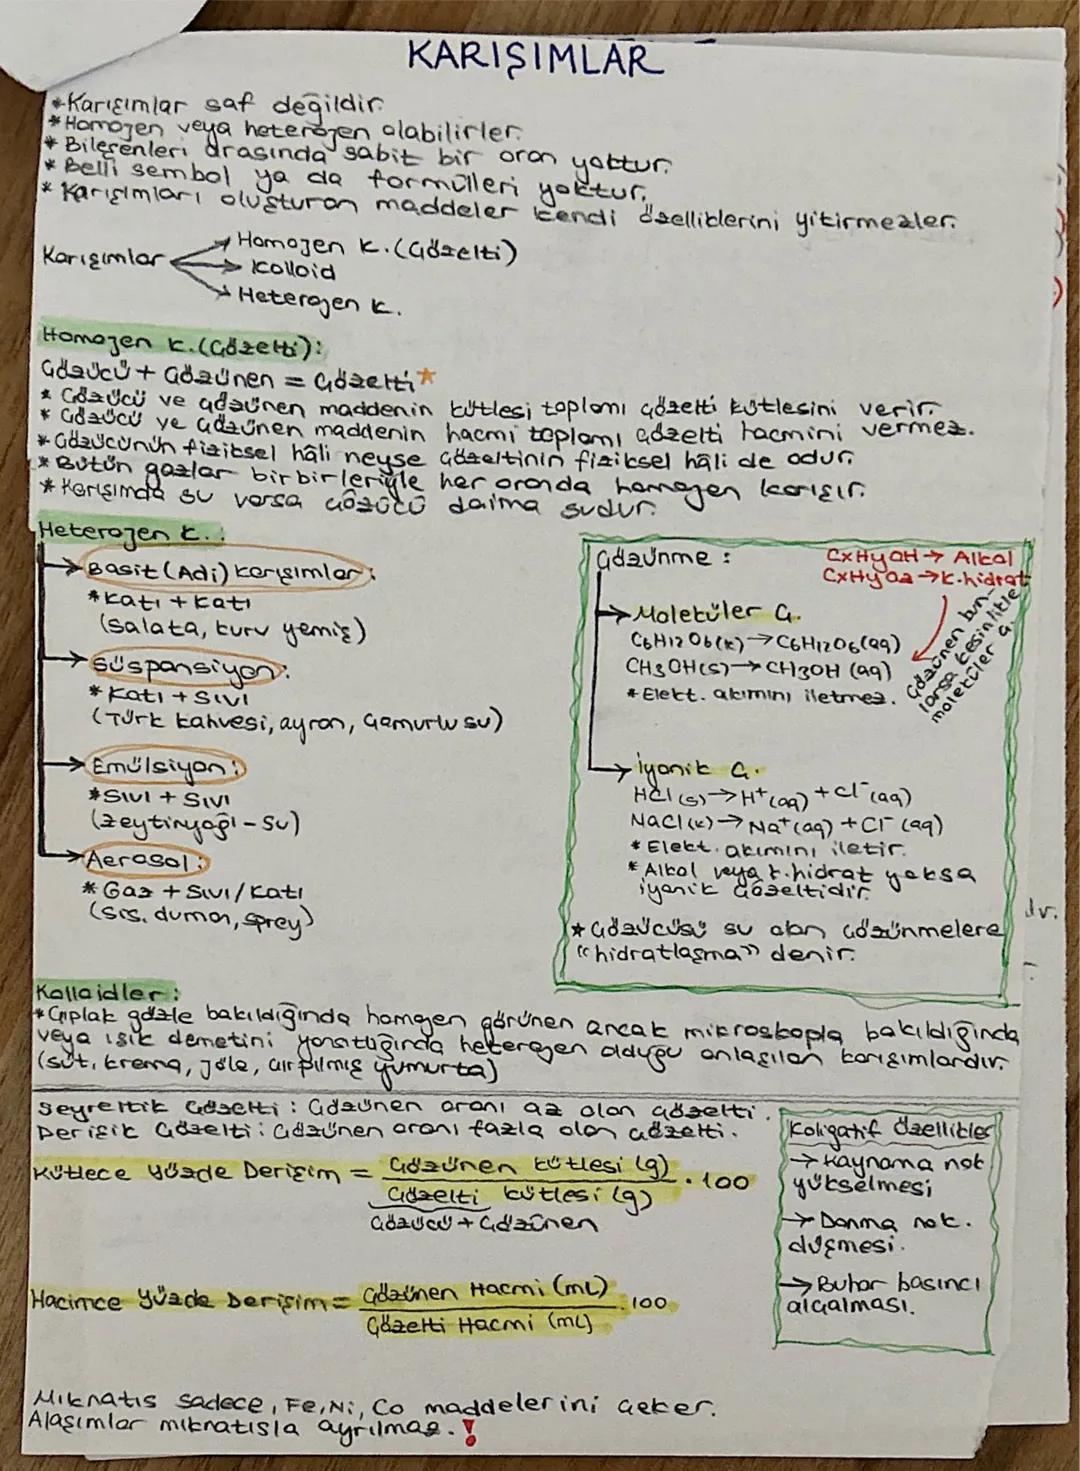 KARIŞIMLAR
*Karışımlar saf değildir.
*Homojen veya heterojen olabilirler.
* Bileşenleri arasında sabit bir oran yoktur.
* Belli sembol ya da formülleri yoktur.
* Karışımları oluşturan maddeler kendi özelliklerini yitirmezler.
Karışımlar
→ Homojen K. (Çözelti)
→ Kolloid
→ Heterojen K.
Homojen K. (Çözelti):
Çözücü + Çözünen = Çözelti ★
* Çözücü ve çözünen maddenin kütlesi toplamı çözelti kütlesini verir.
* Çözücü ve çözünen maddenin hacmi toplamı çözelti hacmini vermez.
* Çözücünün fiziksel hâli neyse çözeltinin fiziksel hâli de odur.
* Bütün gazlar birbirleriyle her oranda homojen karışır.
* Karışımda su varsa çözücü daima sudur.
Heterojen K.:
→ Basit (Adi) Karışımlar:
*Katı + Katı
(salata, kuru yemiş)
→ Süspansiyon:
*Katı + Sıvı
(Türk kahvesi, ayran, çamurlu su)
→ Emülsiyon:
*Sıvı + Sıvı
(zeytinyağı - su)
→ Aerosol:
* Gaz + Sıvı/Katı
(sis, duman, sprey)
Çözünme:
CxHyOH → Alkol
CxHyOz → K.hidrat
Çözünen bun-
larsa kesinlikle
moleküler ç.
→ Moleküler Ç.
C6H12O6(k) → C6H12O6(aq)
CH3OH(s) → CH3OH (aq)
*Elekt. akımını iletmez.
→ İyonik Ç.
HCl(s) → H⁺(aq) + Cl⁻(aq)
NaCl(k) → Na⁺(aq) + Cl⁻(aq)
* Elekt. akımını iletir.
* Alkol veya k.hidrat yoksa
iyonik çözeltidir.
* Çözücüsü su olan çözünmelere
"hidratlaşma" denir.
dır.
Kolloidler:
*Çıplak gözle bakıldığında homojen görünen ancak mikroskopla bakıldığında
veya ışık demetini yansıttığında heterojen olduğu anlaşılan karışımlardır.
(süt, krema, jöle, çırpılmış yumurta)
Seyreltik Çözelti: Çözünen oranı az olan çözelti.
Derişik Çözelti: Çözünen oranı fazla olan çözelti.
Kütlece Yüzde Derişim = Çözünen kütlesi (g) / Çözelti kütlesi (g) . 100
Çözücü + Çözünen
Hacimce Yüzde Derişim = Çözünen Hacmi (mL) / Çözelti Hacmi (mL) . 100
Koligatif Özellikler
→ Kaynama nok.
yükselmesi
→ Donma nok.
düşmesi.
→ Buhar basıncı
alçalması.
Mıknatıs sadece, Fe, Ni, Co maddelerini çeker.
Alaşımlar mıknatısla ayrılmaz. !